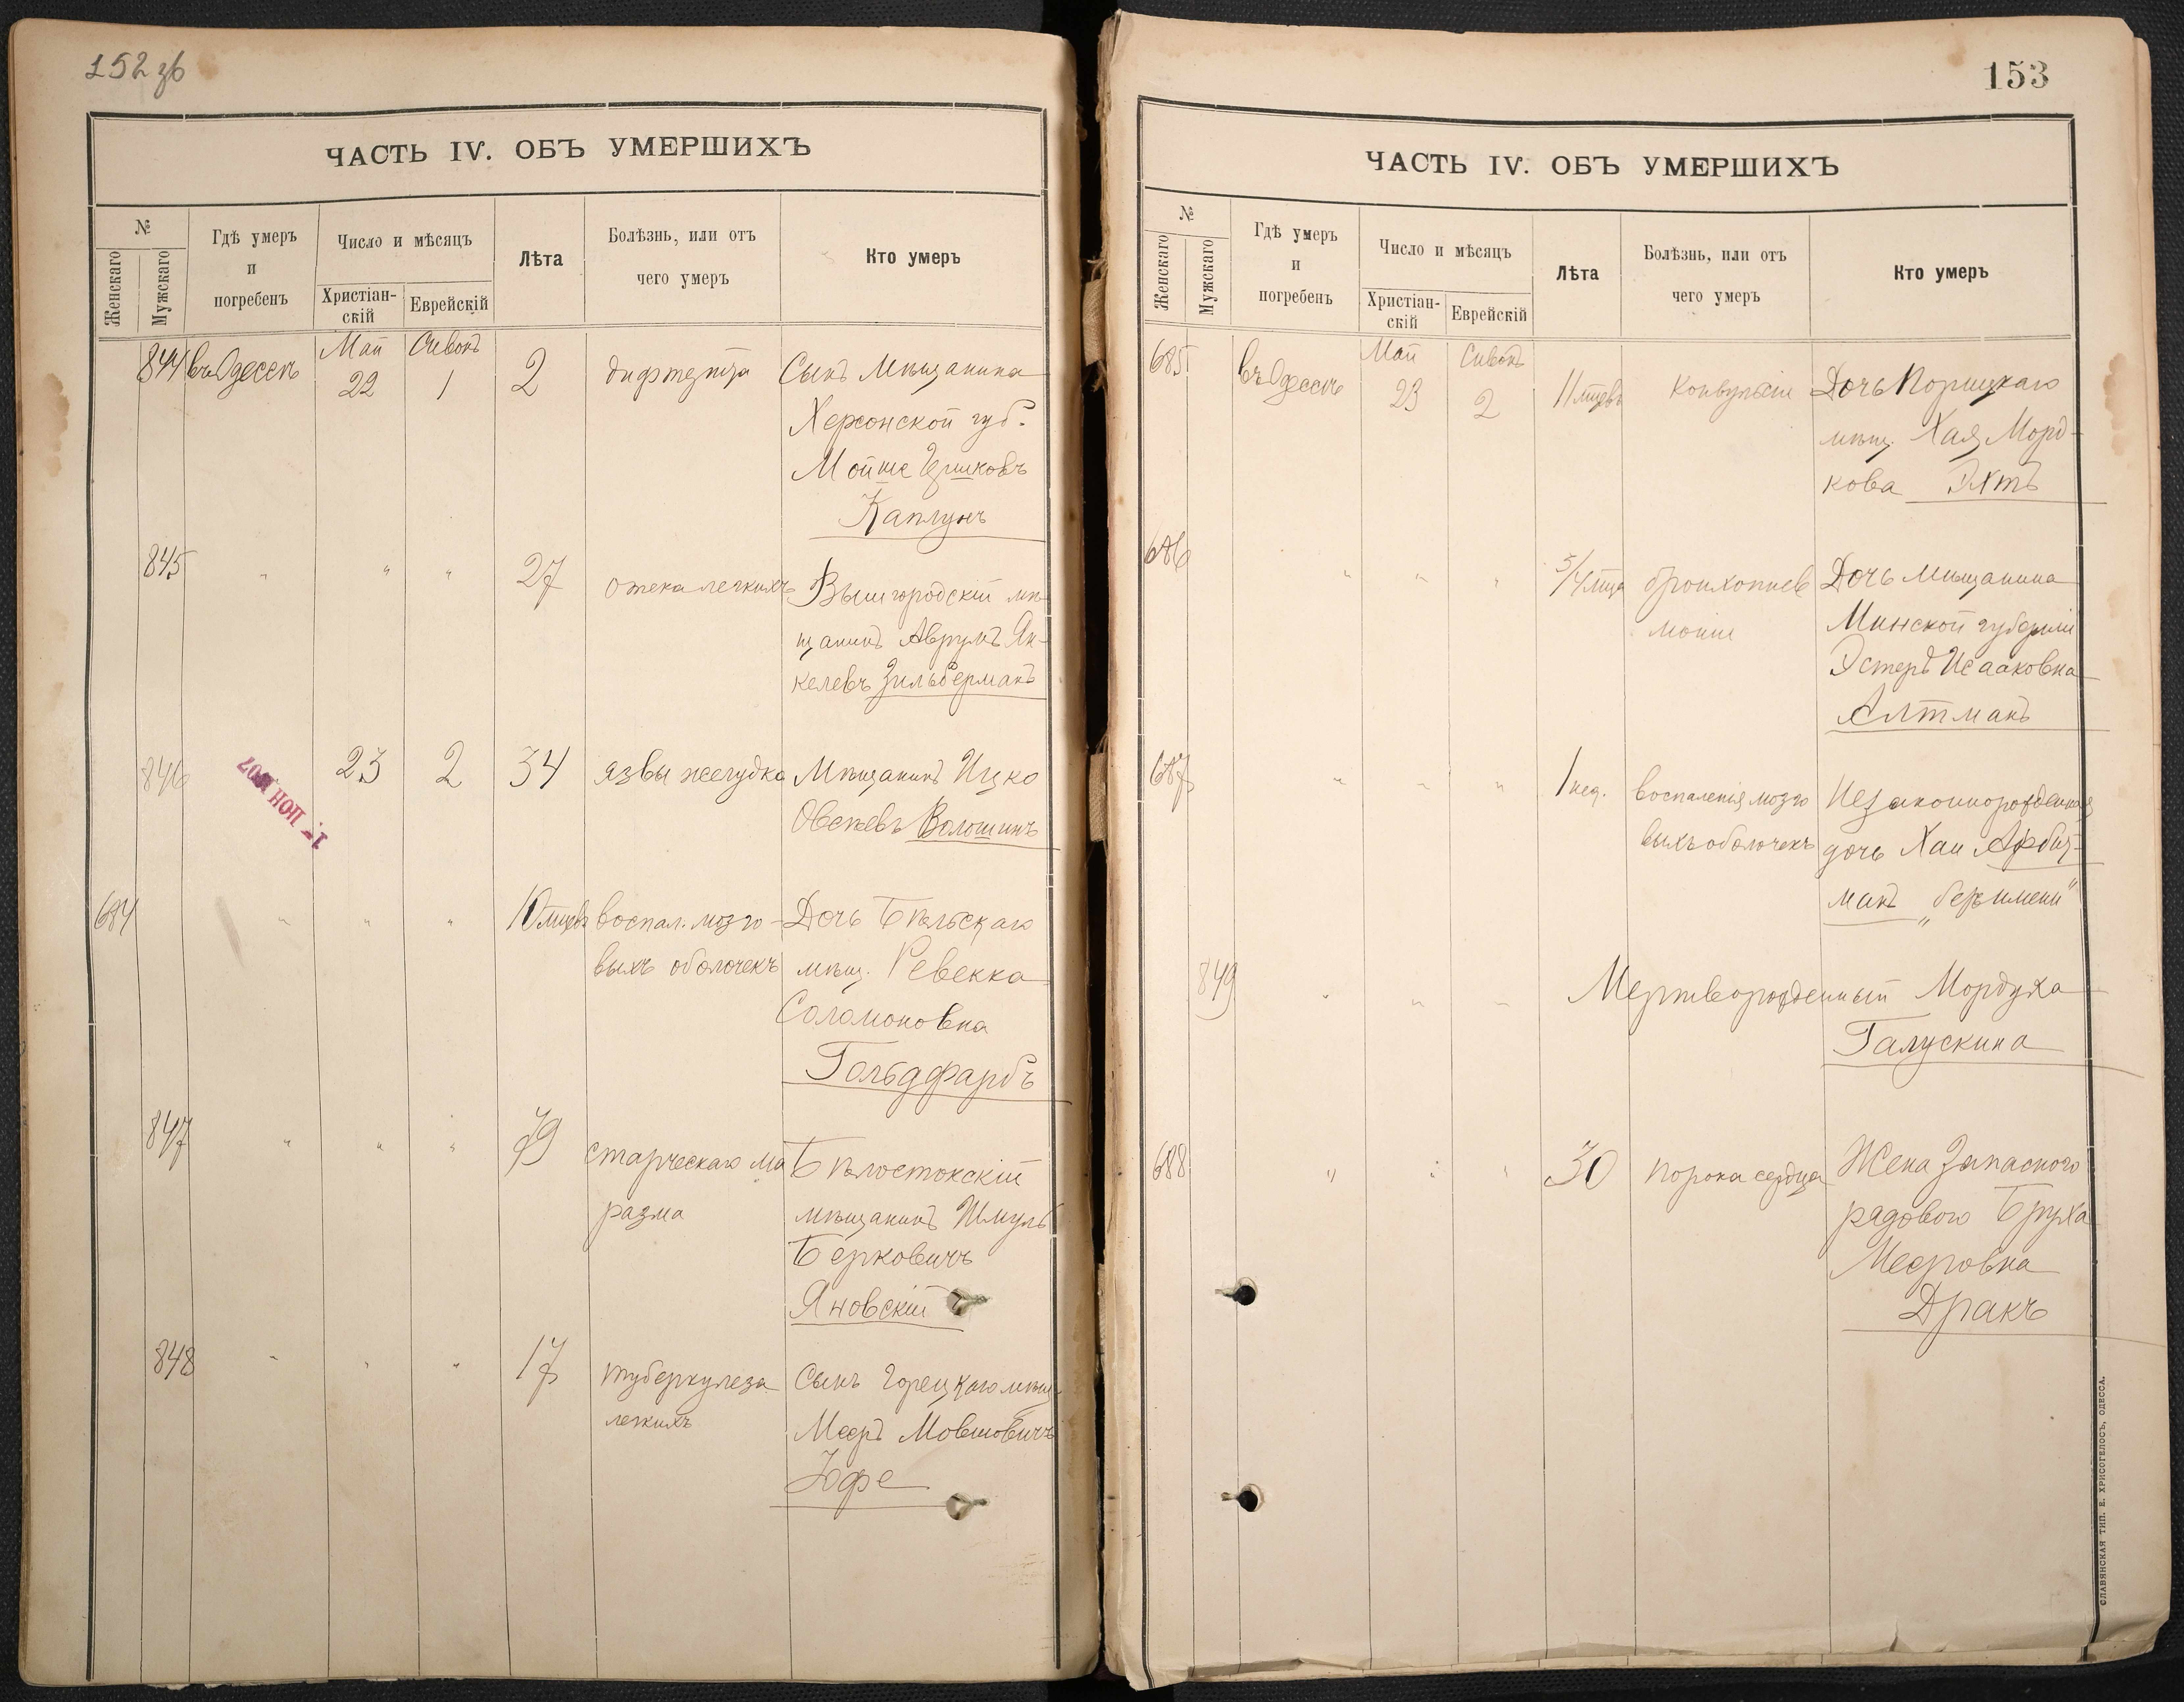 152 зв
ЧАСТЬ IV. ОБЪ УМЕРШИХЪ
№
Женскаго
Мужскаго
Гдѣ умеръ
и
погребенъ
Число и мѣсяцъ
Христіан-
скій
Еврейскій
Лѣта
Болѣзнь, или отъ
чего умеръ
Кто умеръ
844 въ Одессѣ Май 22 Сивонъ 1 2 дифтерита Сынъ Мѣщанина
Херсонской губ.
Мойше Гершковъ
Каплунъ
845 " " " 27 отека легкихъ Вышгородскій мѣ-
щанинъ Аврумъ Ян-
келевъ Зильберманъ
846 23 2 34 язвы желудка Мѣщанинъ Ицко
Овсѣевъ Волошинъ
1 - ИЮН 1907
684 " " " 10 мцевъ воспал. мозго- Дочь Бѣльскаго
выхъ оболочекъ мѣщ. Ревекка
Соломоновна
Гольдфарбъ
847 " " " 79 старческаго ма Бѣлостокскій
размa мѣщанинъ Шмуль
Берковичъ
Яновскій
848 " " " 17 туберкулеза Сынъ Горецкаго мѣщ.
легкихъ Меєръ Мовшовичъ
Юфе
153
ЧАСТЬ IV. ОБЪ УМЕРШИХЪ
№
Женскаго
Мужскаго
Гдѣ умеръ
и
погребенъ
Число и мѣсяцъ
Христіан-
скій
Еврейскій
Лѣта
Болѣзнь, или отъ
чего умеръ
Кто умеръ
685 въ Одессѣ Май 23 Сивонъ 2 11 мцевъ Конвульсіи Дочь Порицкаго
мѣщ. Хая Морд-
кова Эхтъ
686 " " " 5/4 мца бронхопнев Дочь Мѣщанина
моніи Минской губерніи
Эстеръ Исааковна
Алтманъ
687 " " " 1 нед. воспаленія мозго Незаконнорожденная
выхъ оболочекъ дочь Хаи Арбиз-
манъ „безъ имени"
849 " " " Мертворожденный Мордуха
Галускина
688 " " " 30 порока сердца Жена Запасного
рядового Бруха
Меєровна
Дракъ
СЛАВЯНСКАЯ ТИП. Е. ХРИСОГЕЛОСЪ, ОДЕССА.